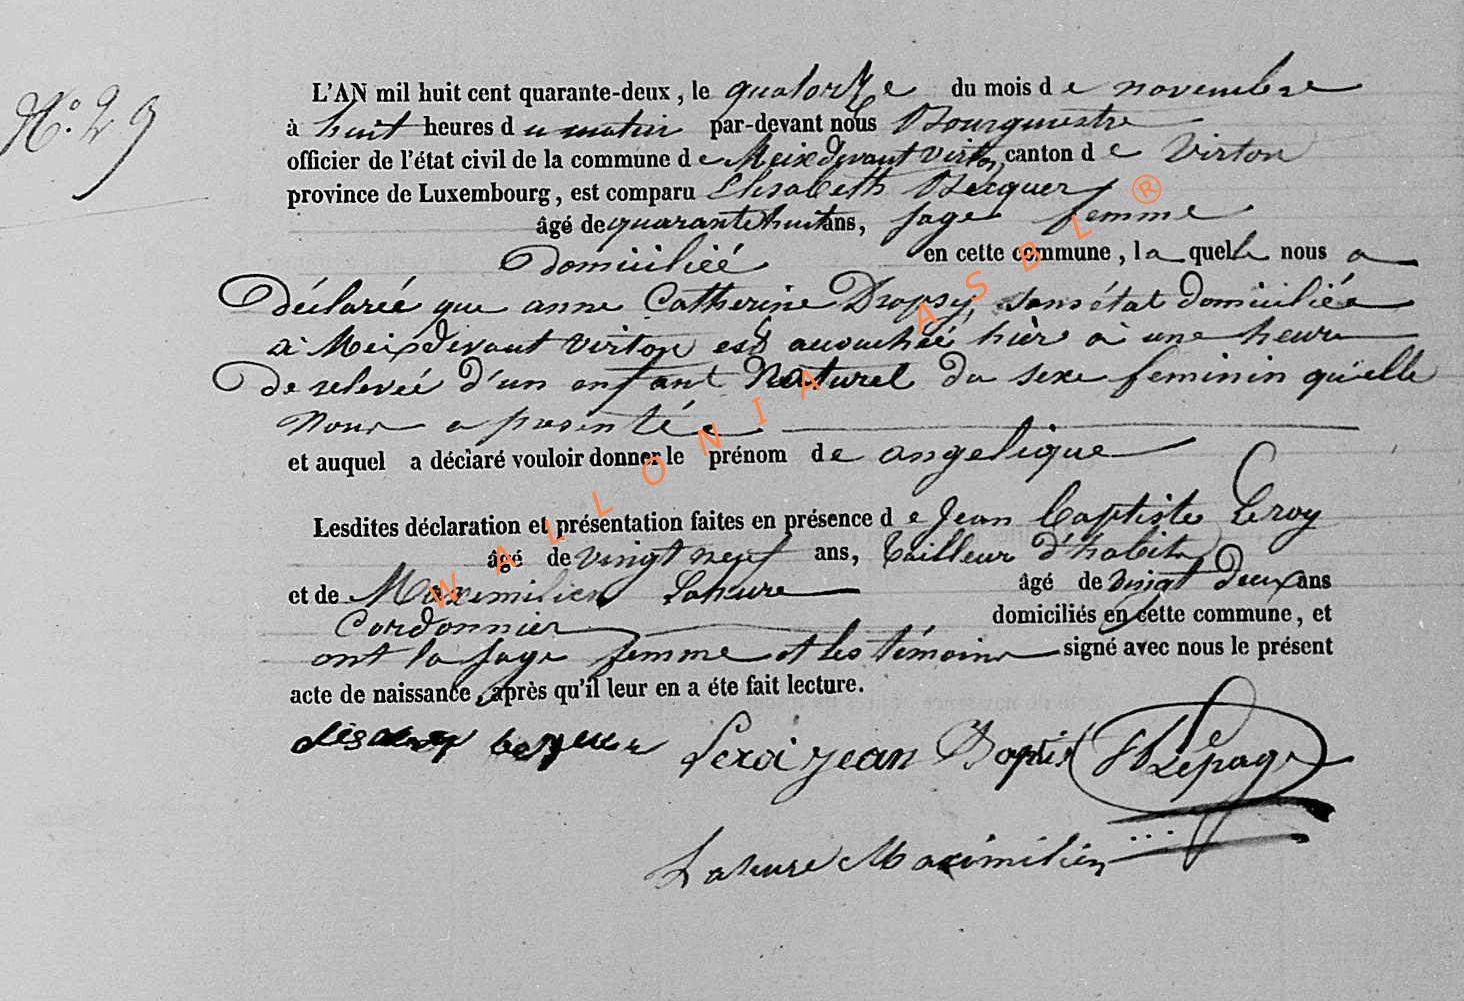 N°. 29
L'AN mil huit cent quarante-deux, le quatorze du mois de novembre
à huit heures du matin par-devant nous Bourguestre
officier de l'état civil de la commune de Meixdevant virton canton de Virton
province de Luxembourg, est comparu Elisabeth Becquer
âgé de quarantehuit ans, sage femme
Domiciliée en cette commune, laquelle nous a
Déclarée que anne Catherine Dropsy, sans état domiciliée
à Meixdevant virton est accouchée hièr à une heure
De relevée d'un enfant Naturel du sexe feminin qu'elle
Nous a presentée
et auquel a déclaré vouloir donner le prénom de angelique
Lesdites déclaration et présentation faites en présence de Jean Baptiste Leroy
âgé de vingt neuf ans, tailleur d'habits
et de Maximilien Lahure âgé de vingt deux ans
Cordonnier domiciliés en cette commune, et
ont la sage femme et les témoins signé avec nous le présent
acte de naissance, après qu'il leur en a éte fait lecture.
Leroi jean Baptist Lepage
Lahure Maximilien
WALLONIA ASBL ®